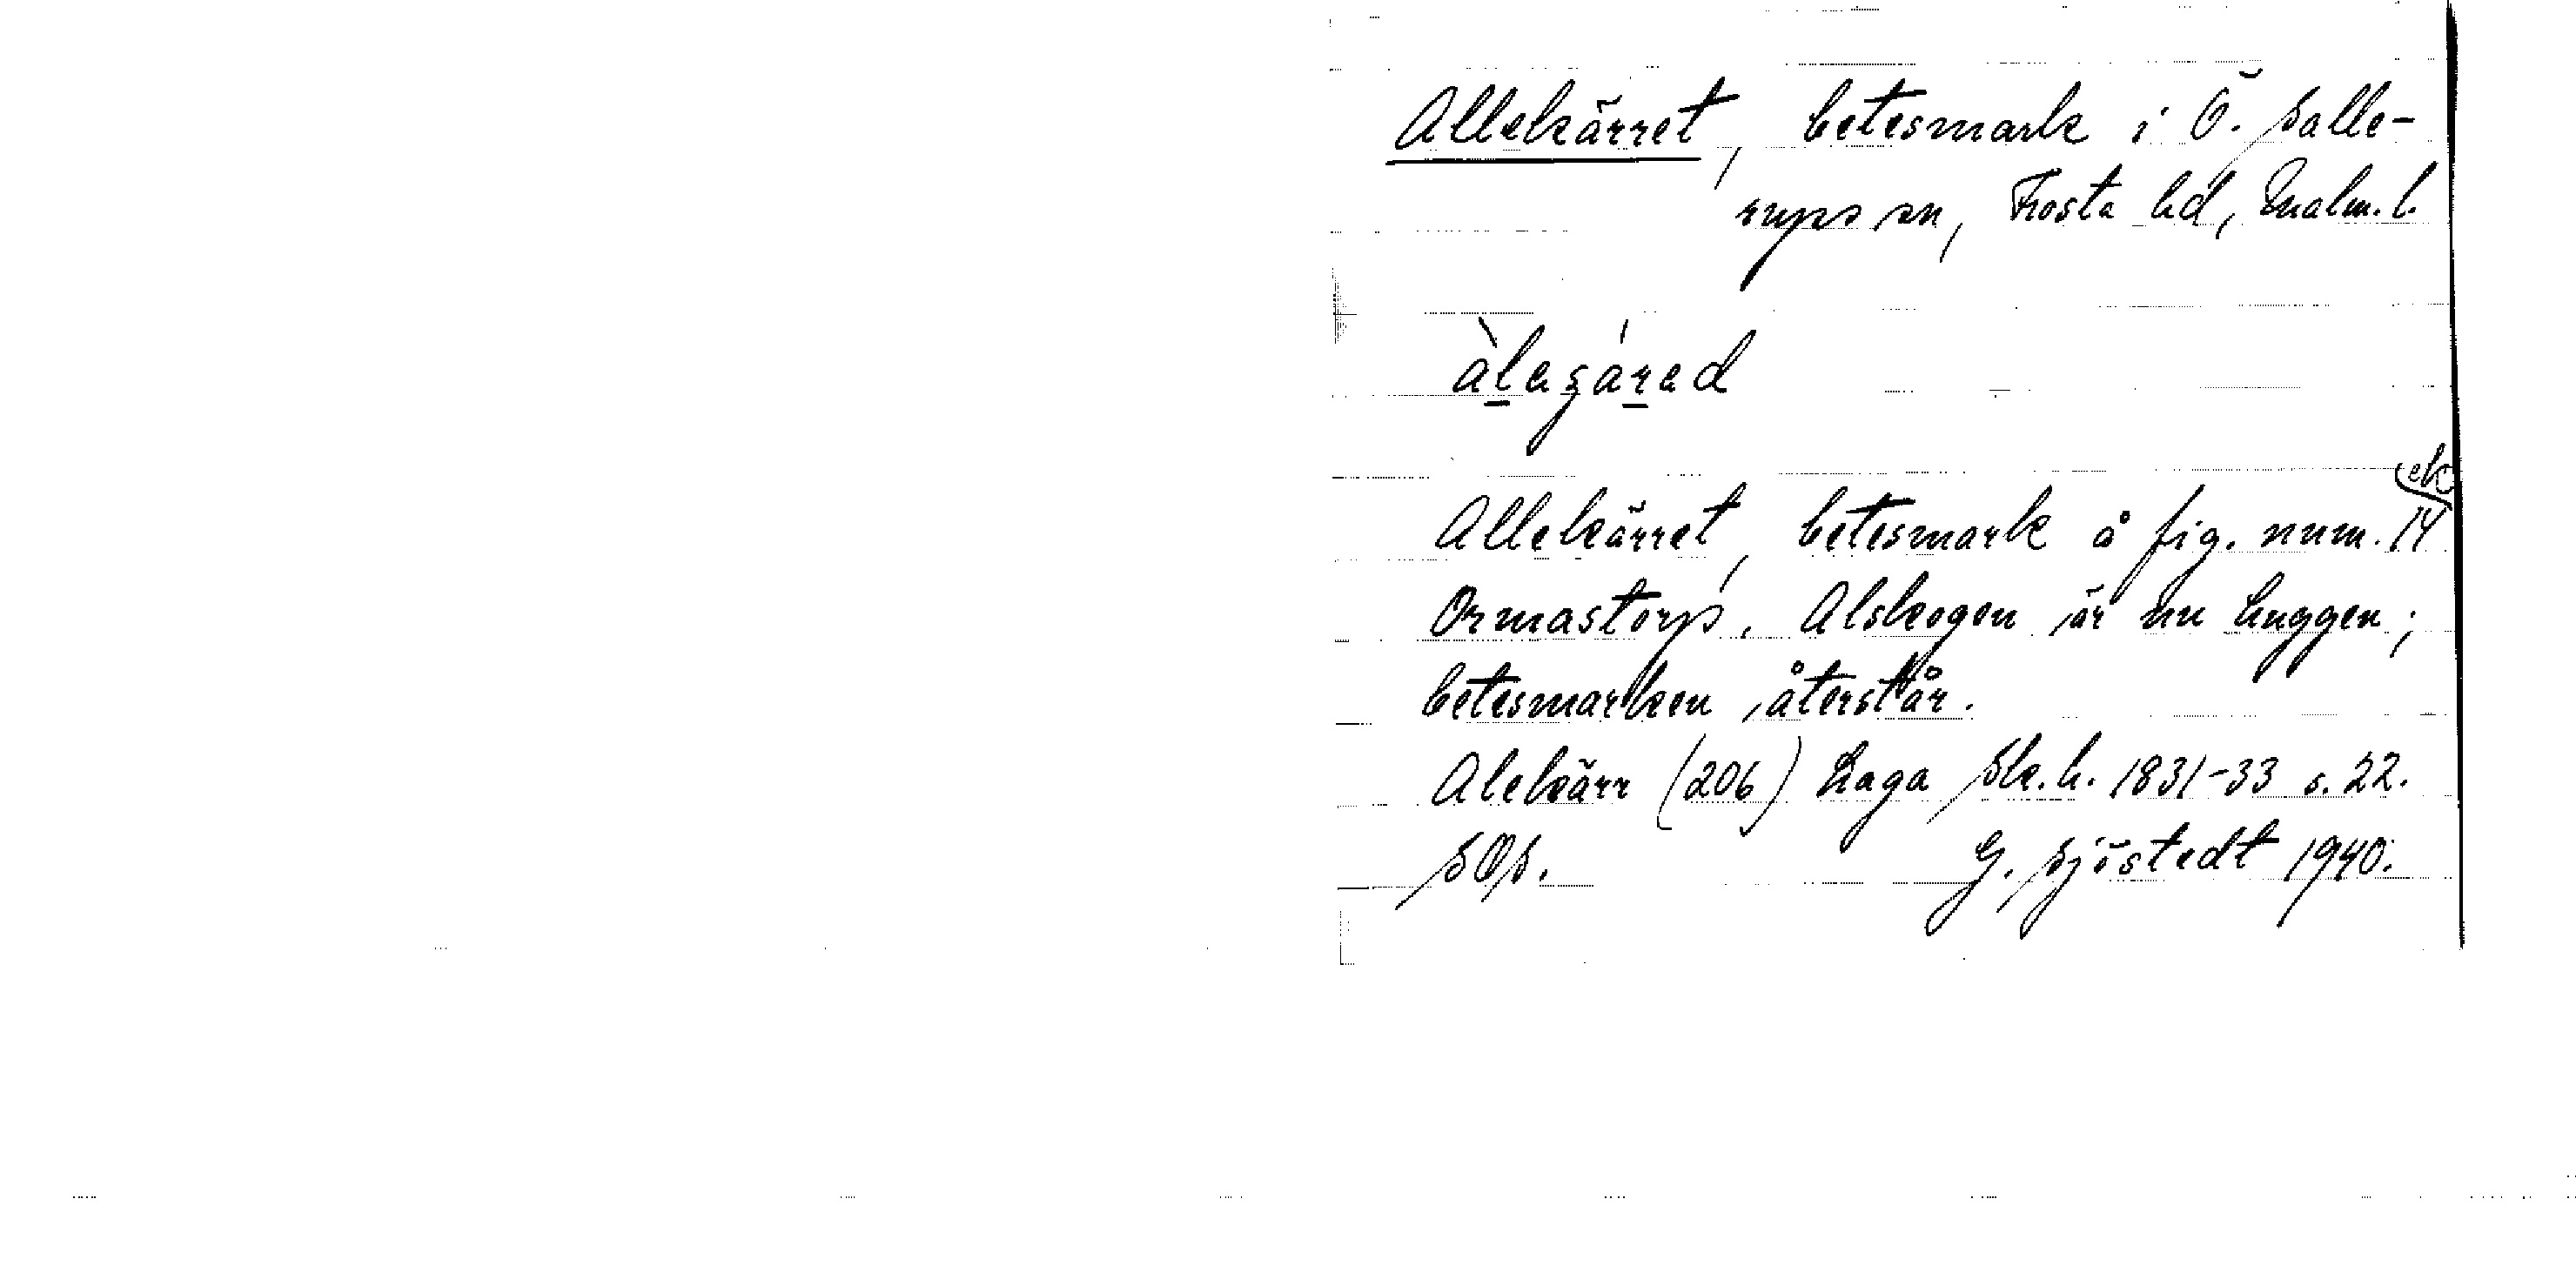 Allekärret, betesmark i Ö. Salle-
rups sn, Frosta hd, Malm. l.
àlegáred
Allekärret, betesmark å fig. num. 14
Ormastorp. Alskogen är nu huggen;
betesmarken återstår.
Alekärr (206) Laga Sk. h. 1831-33 s. 22.
SOS. G. Sjöstedt 1940.